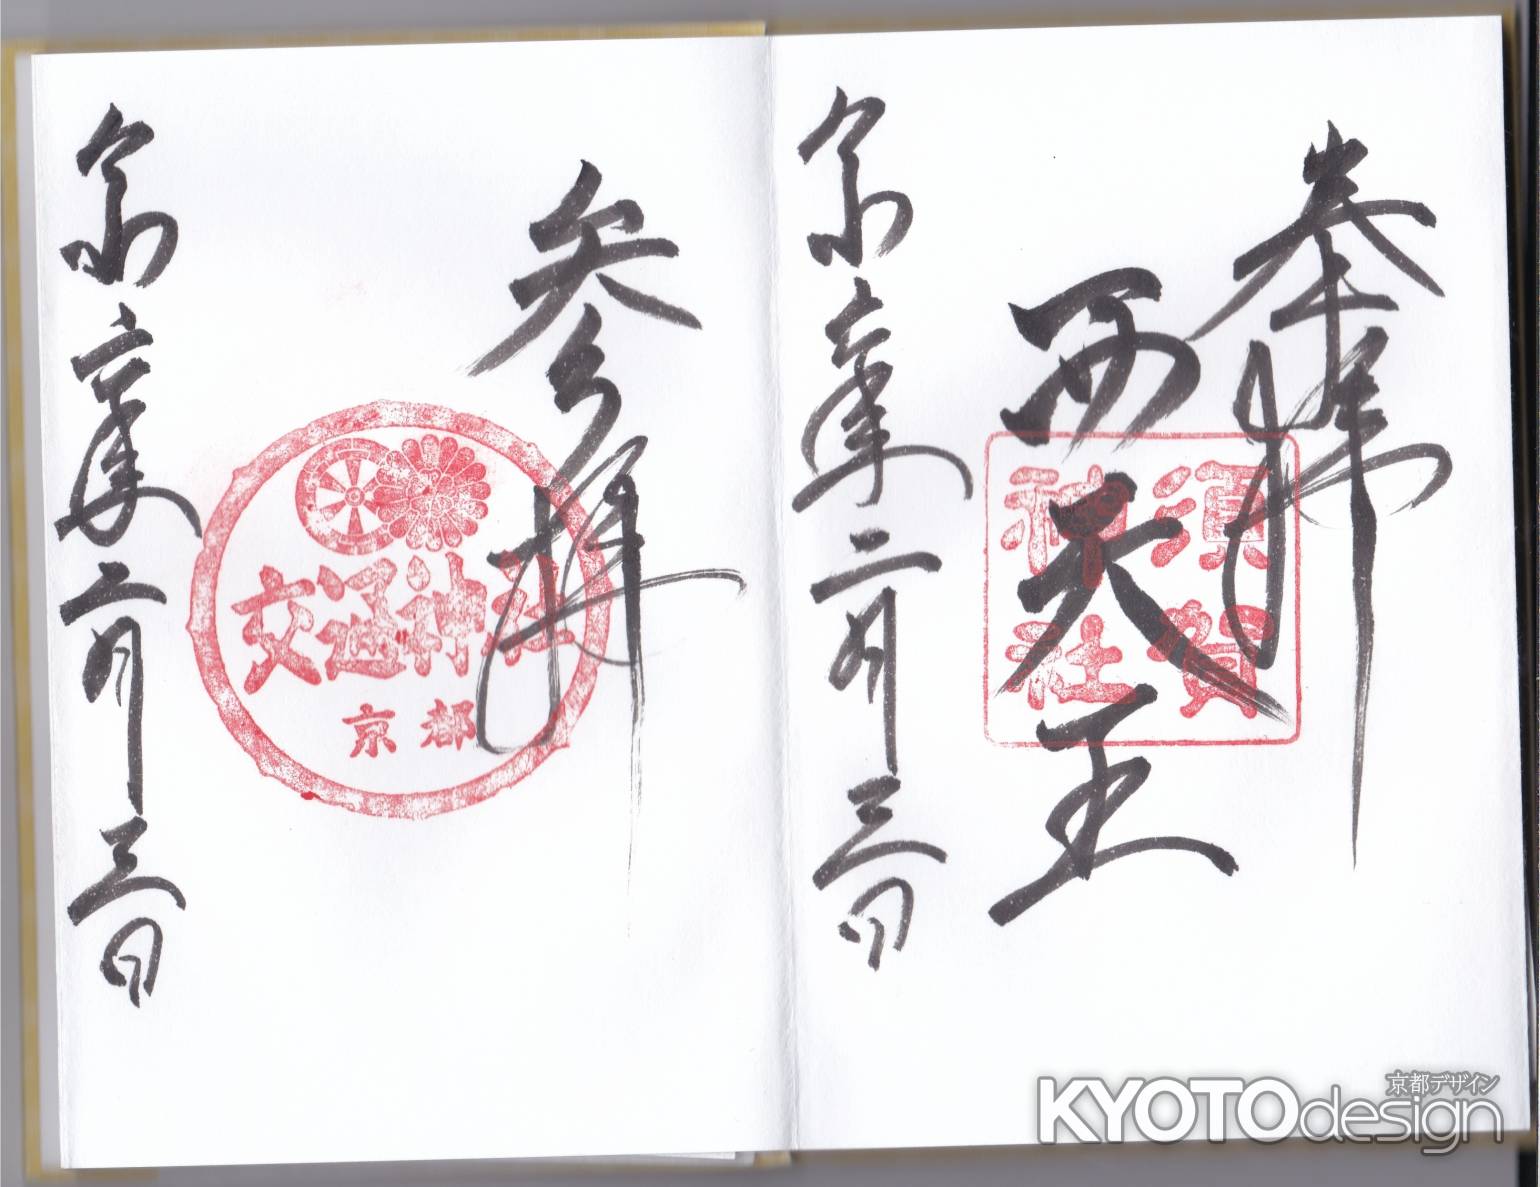 奉拝
西天王
須賀
神社
令和六年二月三日
参拝
交通神社
京都
令和六年二月三日
京都デザイン
KYOTOdesign